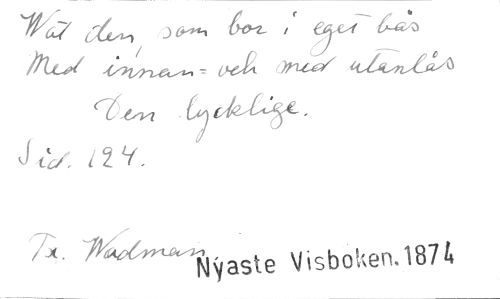 Wät den, som bor i eget bås
Med innan= och med utanlås
Den lycklige.
Sid. 124.
Tr. Wadman
Nyaste Visboken. 1874